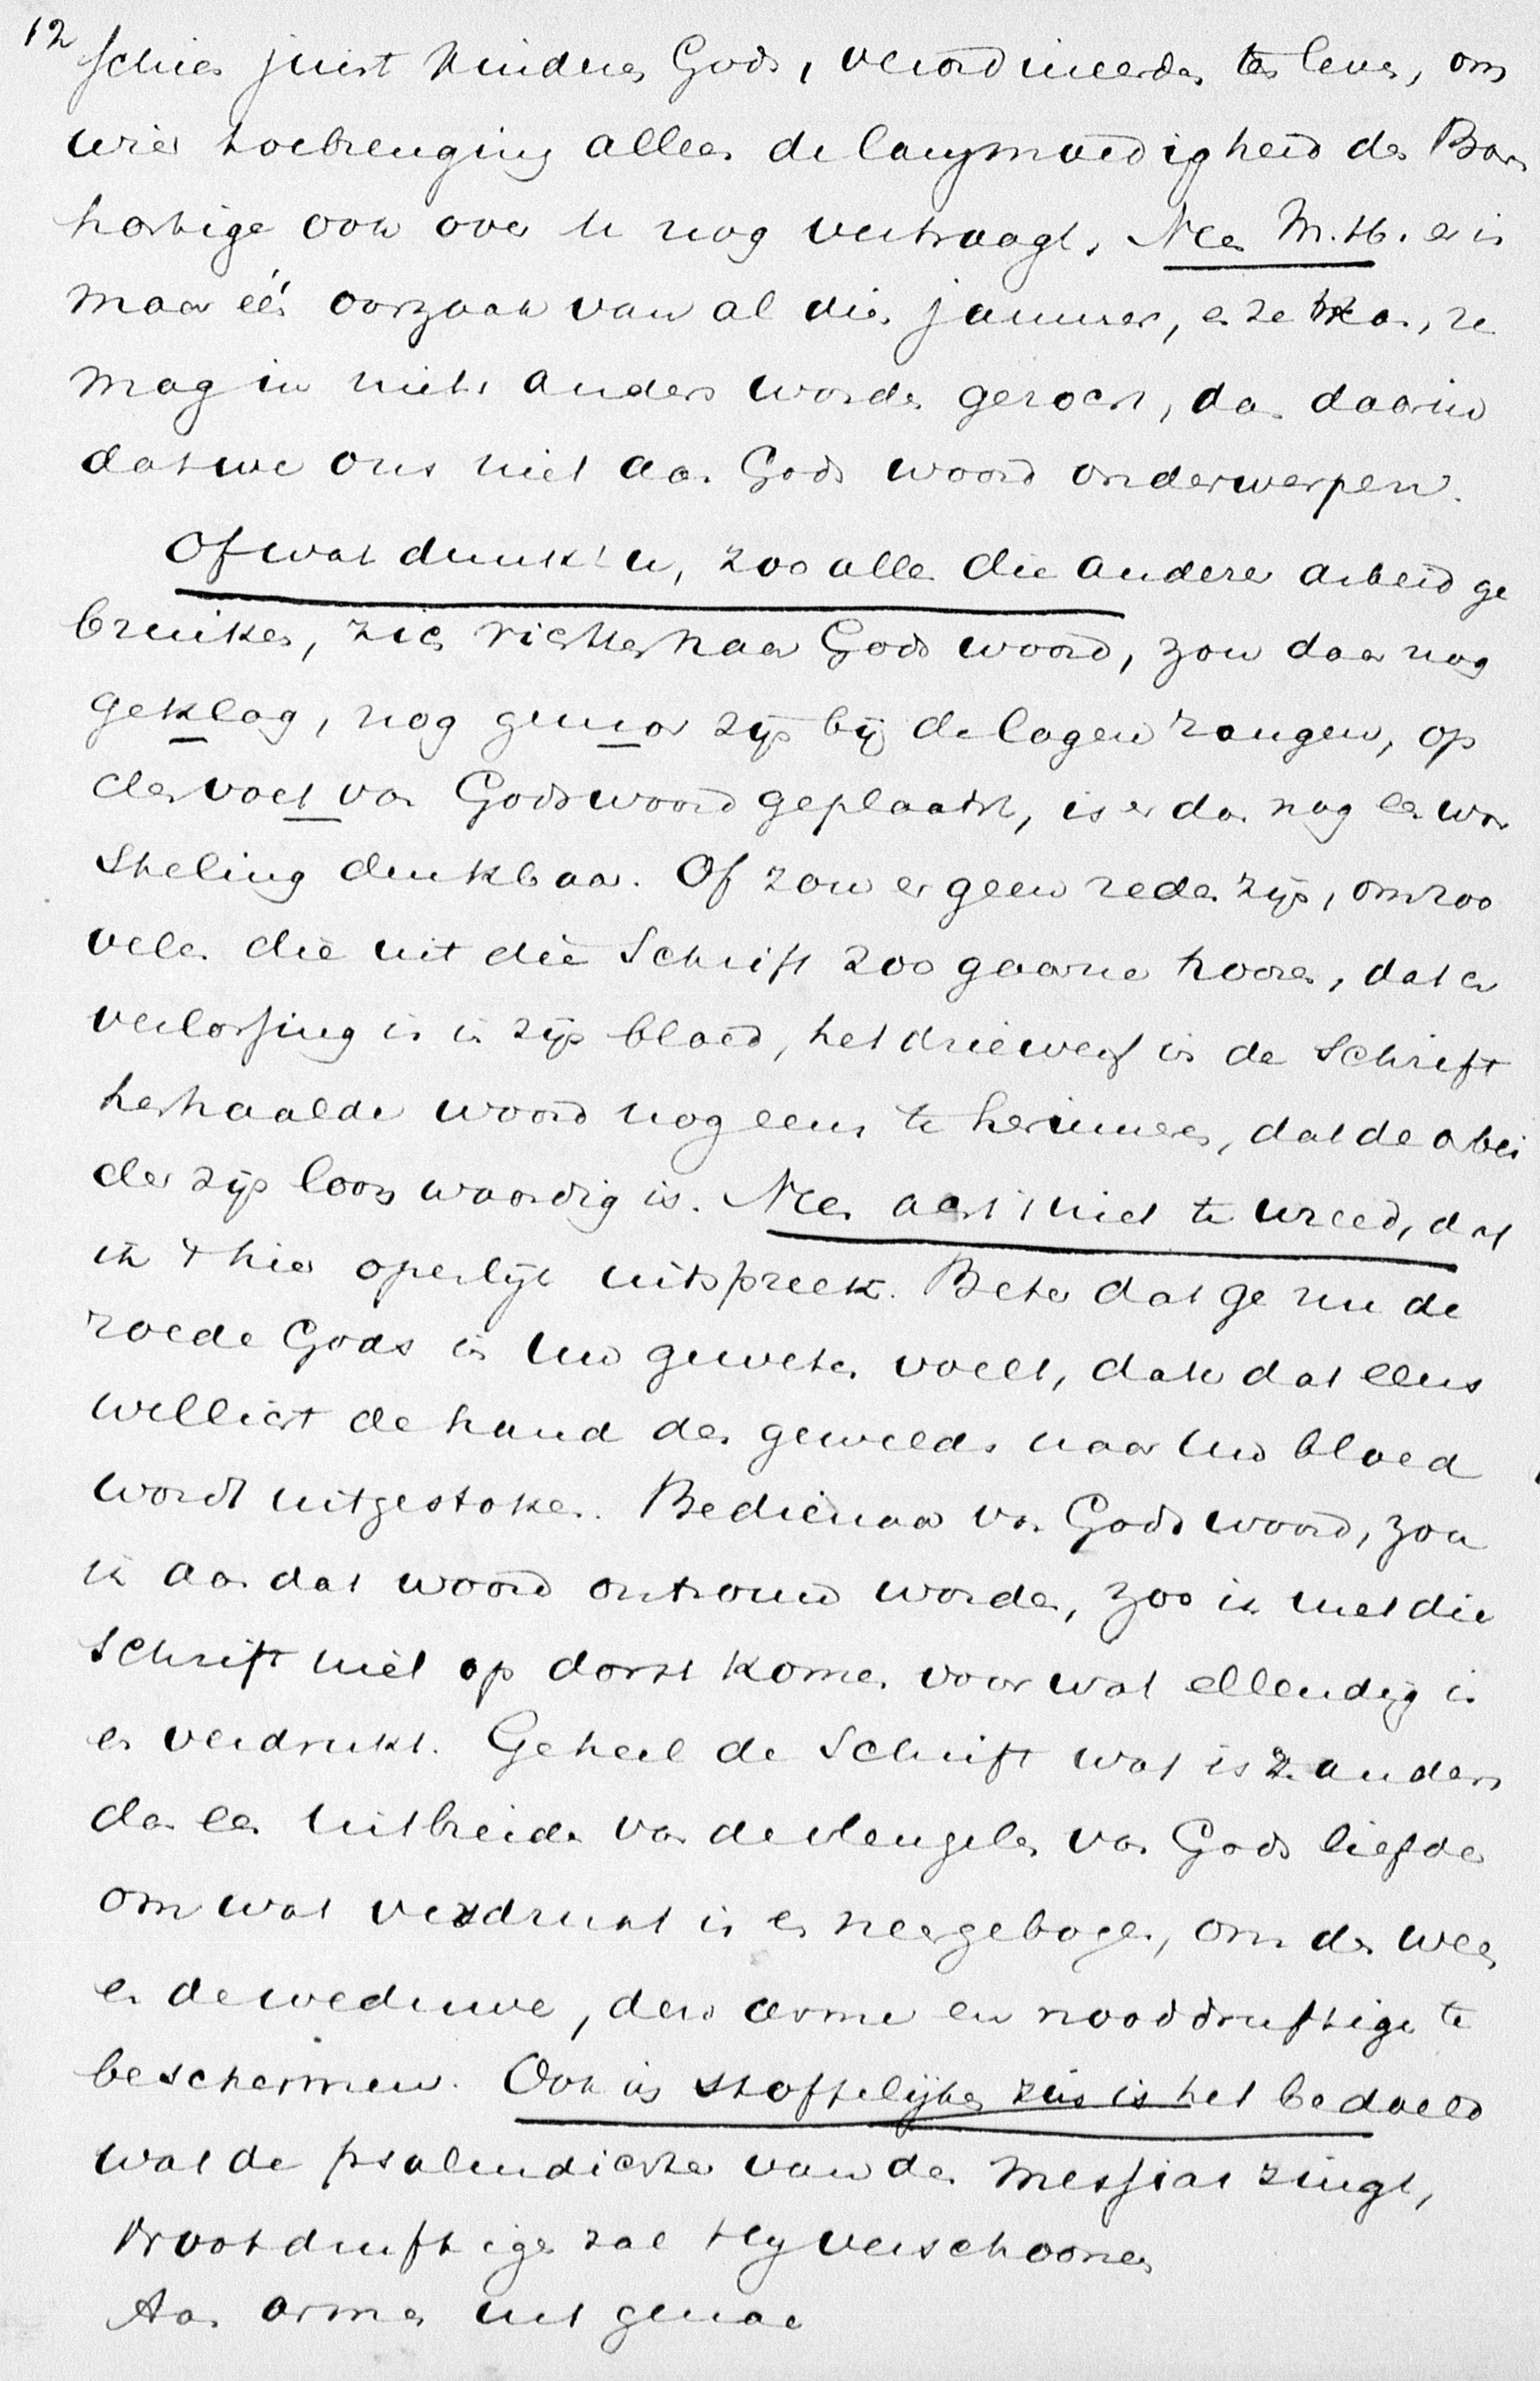 12
schien juist kinderen Gods, verordineerden ten leven, om
wier toebrenging alleen de langmoedigheid des Barm
hartige ook over u nog vertraagt. Neen M.H. er is
maar één oorzaak van al dien jammer, en ze kan, ze
mag in niets anders worden gezocht, dan daarin
dat we ons niet aan Gods woord onderwerpen.
Of wat dunkt u, zoo allen die anderer arbeid ge
bruiken, zich richten naar Gods woord, zou daar nog
geklag, nog gemor zijn bij de lagen rangen, op
den voet van Gods woord geplaatst, is er dan nog een wor
steling denkbaar. Of zou er geen reden zijn, om zoo
velen die uit die Schrift zoo gaarne hooren, dat er
verlossing is in zijn bloed, het driewerf in de Schrift
herhaalde woord nog eens te herinneren, dat de arbei
der zijn loon waardig is. Neen acht 't niet te wreed, dat
ik 't hier openlijk uitspreek. Beter dat ge nu de
roede Gods in uw geweten voelt, dan dat eens
wellicht de hand des gewelds naar uw bloed
wordt uitgestoken. Bedienaar van Gods woord, zou
ik aan dat woord ontrouw worden, zoo ik met die
Schrift niet op dorst komen voor wat ellendig is
en verdrukt. Geheel de Schrift wat is z. anders
dan een uitbreiden van de vleugelen van Gods liefde
om wat verdrukt is en neergebogen, om den wees
en de weduwe, den arme en nooddruftige te
beschermen. Ook in stoffelijken zin is het bedoeld
wat de psalmdichter van den Messias zingt,
Nooddruftigen zal Hy verschoonen
Aan armen uit genae